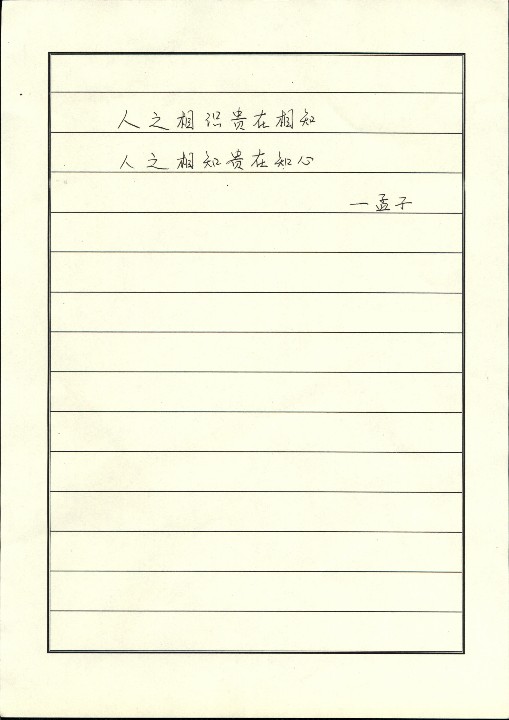 人之相识贵在相知
人之相知贵在知心
一孟子